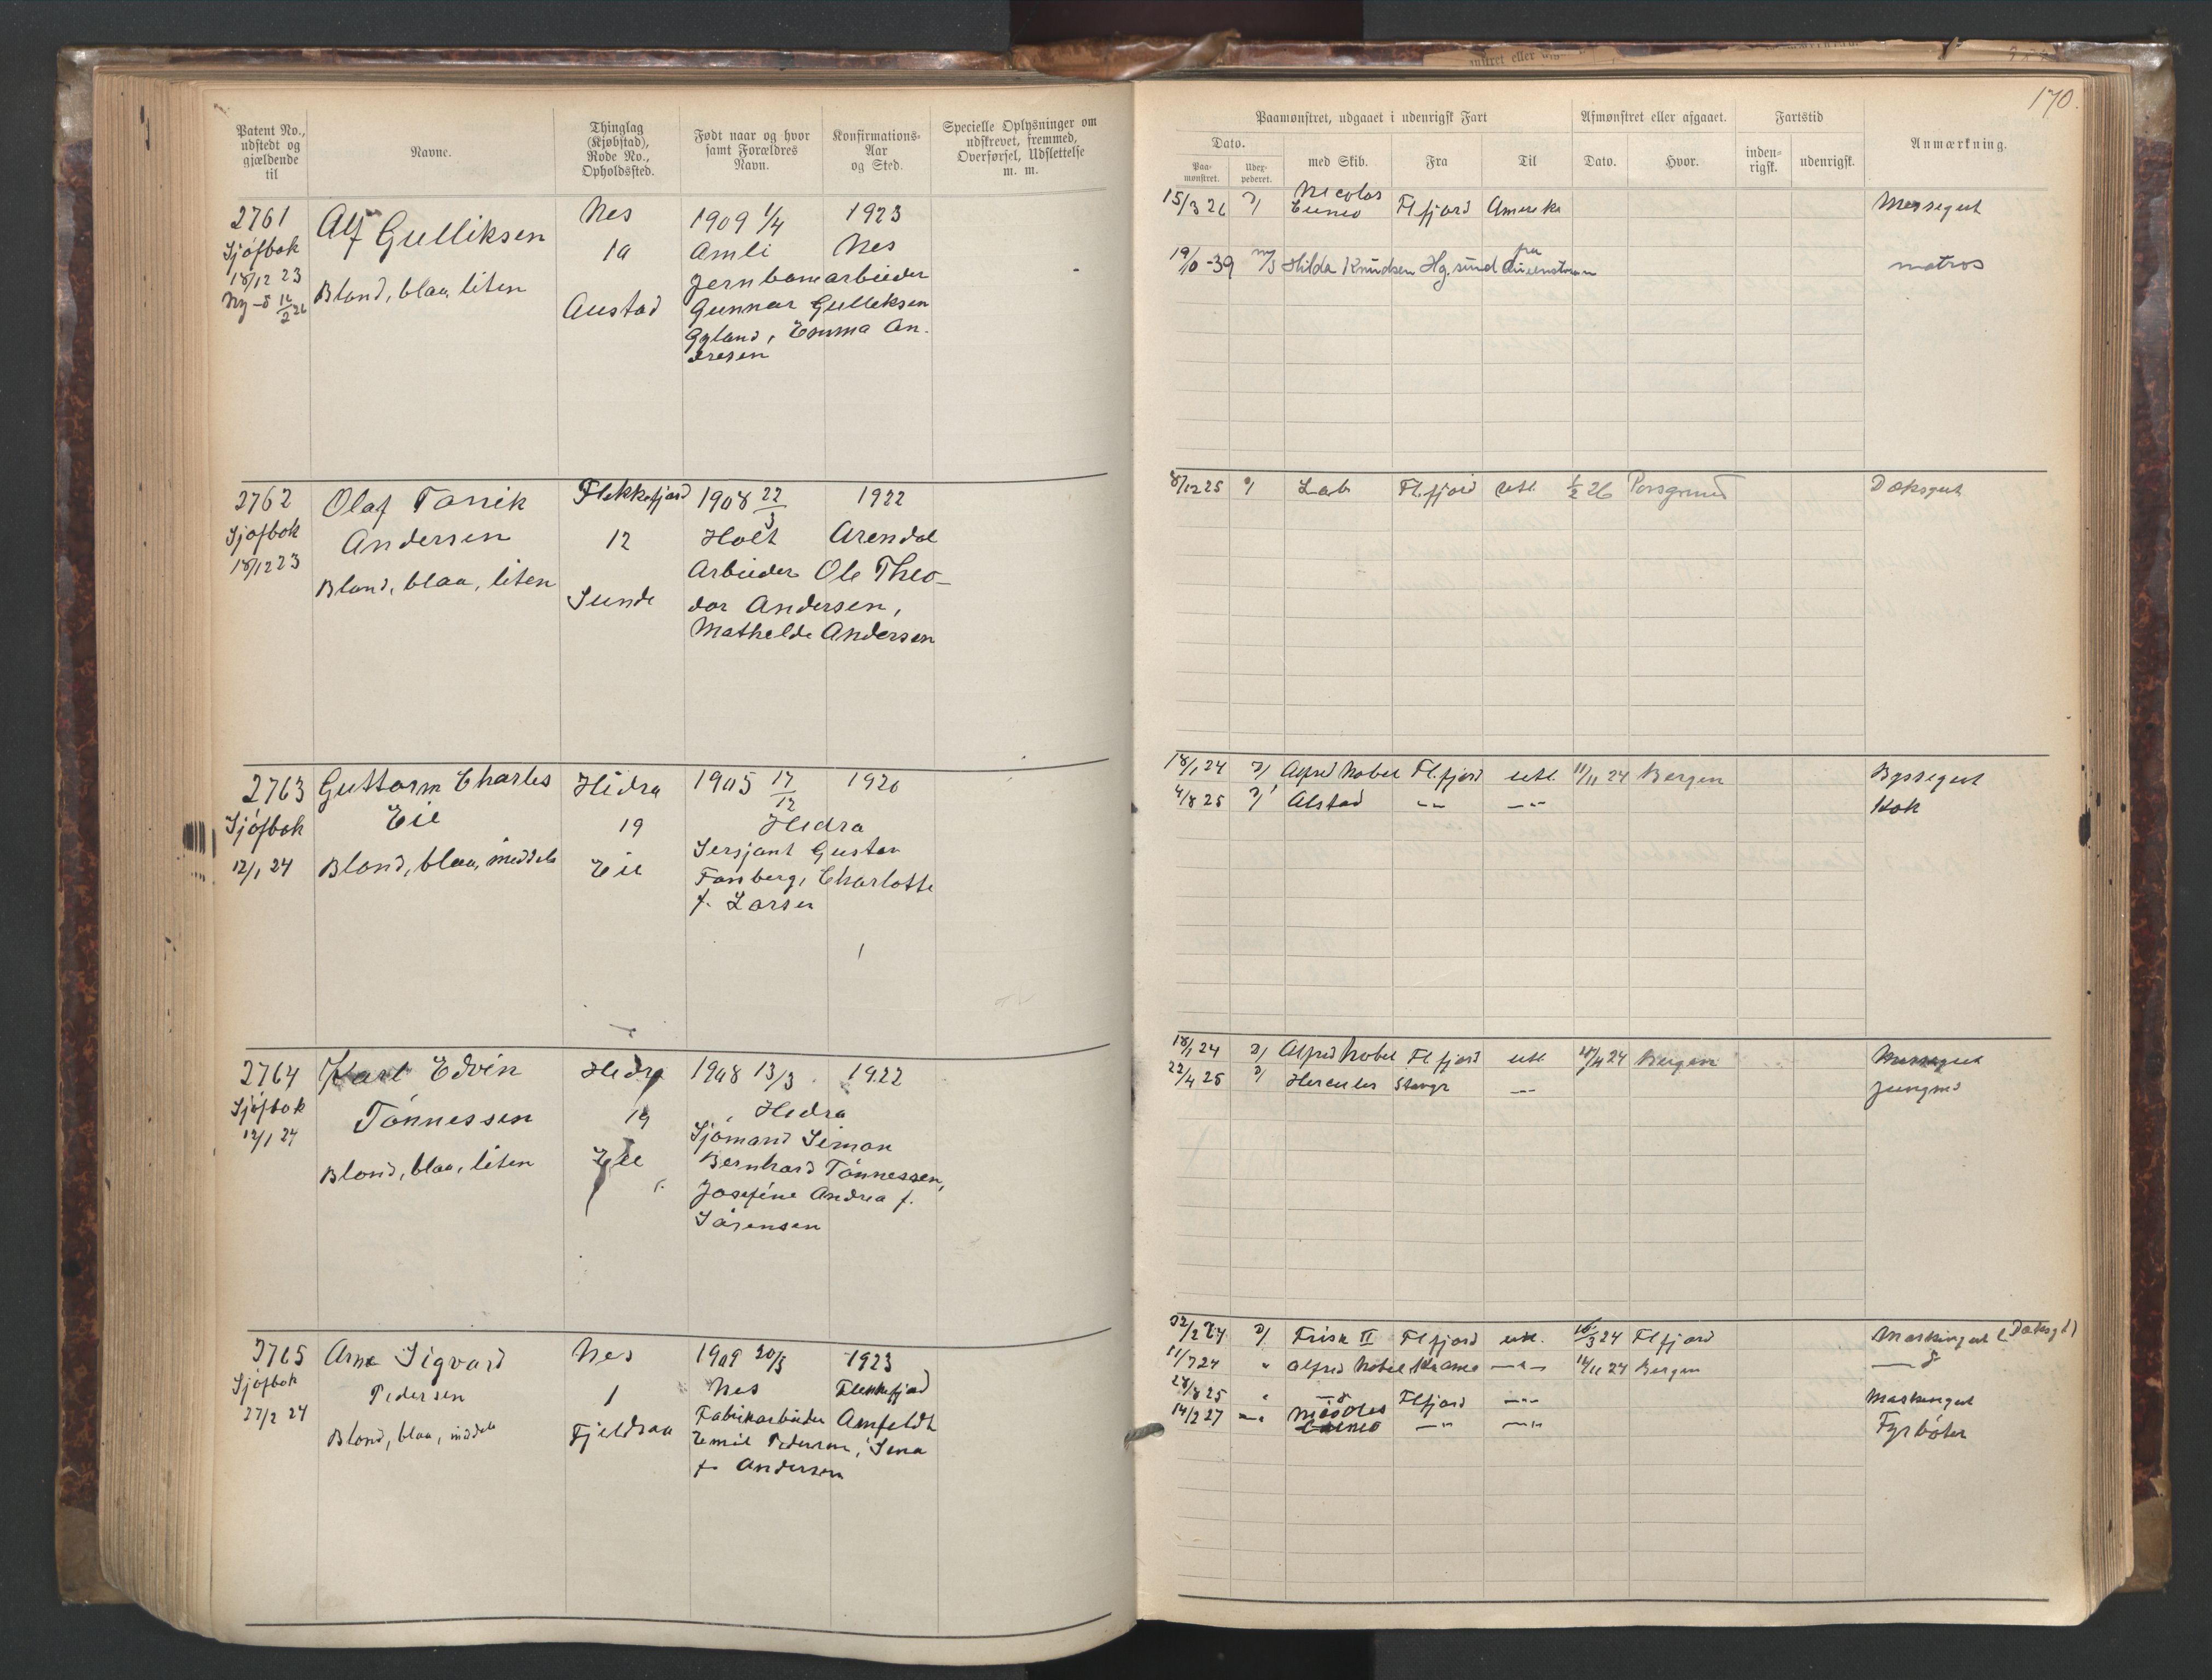 170.
Patent No., udstedt og gjældende til
Navne.
Thinglag (Kjøbstad), Rode No., Opholdssted.
Født naar og hvor samt Forældres Navn.
Konfirmations-Aar og Sted.
Specielle Oplysninger om udskrevet, fremmed, Overførsel, Udslettelse m. m.
Paamønstret, udgaaet i udenrigsk Fart
Afmønstret eller afgaaet.
Fartstid
Anmærkning.
Dato.
Paa-mønstret.
Udex-pederet.
med Skib.
Fra
Til
Dato.
Hvor.
inden-rigsk.
udenrigsk.
2761
Sjøfbok
18/12 23
Ny -d 12/2 26
Alf Gulliksen
Blond, blaa, liten
Nes
1a
Austad
1909 1/4
Amli
Jernbanearbeider
Gunnar Gulleksen
Gyland, Emma An-
dresen
1923
Nes
15/3 26 D/ Nicolas Cuneo Fl.fjord Amerika Messegut
19/10-39 m/s Hilda Knudsen Hg.sund fra matros
2762
Sjøfbok
18/12 23
Olaf Tarrik
Andersen
Blond, blaa, liten
Flekkefjord
12
Sunde
1908 22/3
Holt
Arbeider Ole Theo-
dor Andersen,
Mathelde Andersen
1922
Arendal
8/12 25 D/ Lab Fl.fjord utl. 1/2 26 Porsgrund Dæksgut
2763
Sjøfbok
12/1 24
Guttorm Charles
Eie
Blond, blaa, middels
Hidra
19
Eie
1905 17/12
Hidra
Sersjant Gustav
Fonberg, Charlotte
f. Larsen
1920
18/1 24 D/ Alfred Nobel Fl.fjord utl. 11/11 24 Bergen Byssegut
4/8 25 D/ Alstad -"- -"- Kok
2764
Sjøfbok
12/1 24
Karl Edvin
Tønnessen
Blond, blaa, liten
Hidra
19
Eie
1908 13/3
Hidra
Sjømand Simon
Bernhard Tønnessen,
Josefine Andrea f.
Sørensen
1922
18/1 24 D/ Alfred Nobel Fl.fjord utl. 24 Bergen Messegut
22/4 25 D/ Hercules Stavgr -"- Jungmd
2765
Sjøfbok
27/2 24
Arne Sigvard
Pedersen
Blond, blaa, middels
Nes
1
Fjeldsaa
1909 20/3
Nes
Fabrikarbeider Amfeldt
Emil Pedersen, Sina
f. Andersen
1923
Flekkefjord
2/2 24 D/ Frisk II Fl.fjord utl. 3 24 Fl.fjord Maskingut (Dæksgt)
11/7 24 " Alfred Nobel -"- 14/11 24 Bergen -d
28/8 25 " -d- Fl.fjord -"- Maskingut
14/2 27 -"- Nicolas Cuneo -"- -"- Fyrbøter